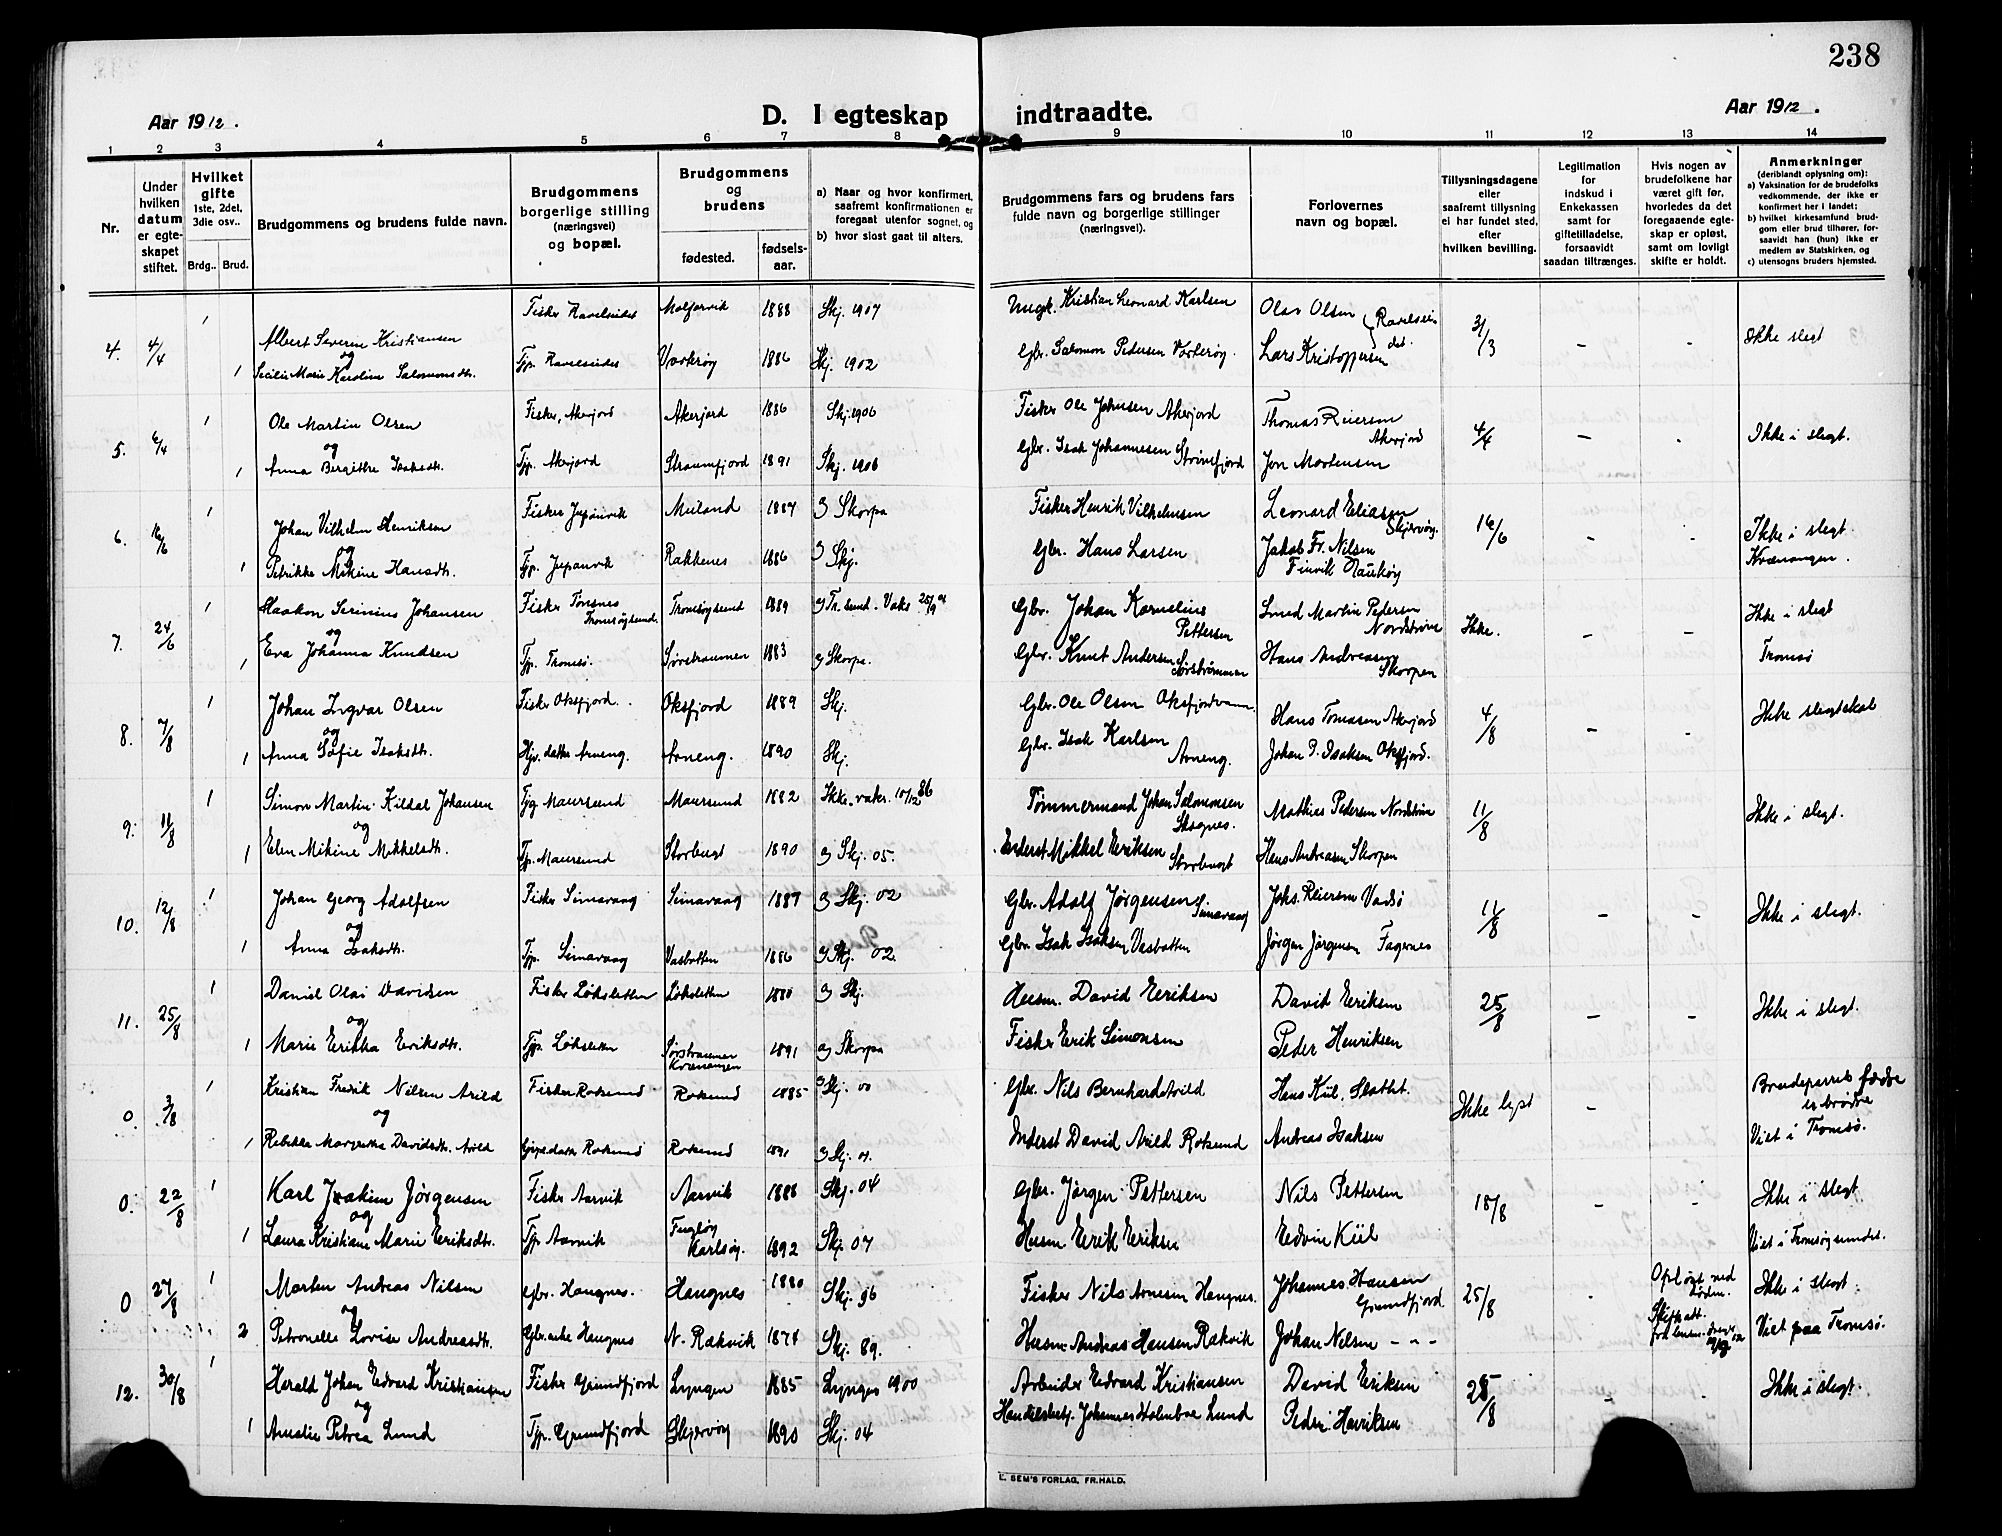 238
Aar 1912.
D. I egteskap indtraadte.
Aar 1912.
1 2 3 4 5 6 7 8 9 10 11 12 13 14
Nr.
Under
hvilken
datum
er egte-
skapet
stiftet.
Hvilket
gifte
1ste, 2det,
3die osv..
Brdg.. Brud.
Brudgommens og brudens fulde navn.
Brudgommens
borgerlige stilling
(næringsvei)
og bopæl.
Brudgommens
og
brudens
fødested.
fødsels-
aar.
a) Naar og hvor konfirmert,
saafremt konfirmationen er
foregaat utenfor sognet, og
b) hvor sidst gaat til alters.
Brudgommens fars og brudens fars
fulde navn og borgerlige stillinger
(næringsvei).
Forlovernes
navn og bopæl.
Tillysningsdagene
eller
saafremt tillysning
ei har fundet sted,
efter
hvilken bevilling.
Legitimation
for
indskud i
Enkekassen
samt for
giftetilladelse,
forsaavidt
saadan tiltrænges.
Hvis nogen av
brudefolkene har
været gift før,
hvorledes da det
foregaaende egte-
skap er opløst,
samt om lovligt
skifte er holdt.
Anmerkninger
(deriblandt oplysning om):
a) Vaksination for de brudefolks
vedkommende, der ikke er
konfirmert her i landet;
b) hvilket kirkesamfund brud-
gom eller brud tilhører, for-
saavidt han (hun) ikke er
medlem av Statskirken, og
c) utensogns bruders hjemsted.
4. 4/4 1 Albert Severin Kristiansen Fisker Ravelseidet 1888 Skj. 1907 Ungk. Kristian Leonard Karlsen Olav Olsen 31/3 - - Ikke slegt
og
1 Secilie Marie Karoline Salomonsdtr. Tjp. Ravelseidet Vorterøy 1886 Skj. 1902 Gbr. Salomon Pedersen Vorterøy. Lars Kristoffersen
5. 6/4 1 Ole Martin Olsen Fisker, Akerjord Akerjord 1886 Skj. 1906 Fisker Ole Johnsen Akerjord Thomas Reiersen Akerjord 4/4 - - Ikke i slegt.
og
1 Anna Bergithe Isaksdtr. Tjp. Akerjord Straumfjord 1891 Skj. 1906 Gbr. Isak Johannesen Jon Mortensen
6. 16/6 1 Johan Vilhelm Henriksen Fisker Jupanvik Meiland 1887 Skorpa Fisker Henrik Vilhelmsen Leonard Eliasen Skjervøy. 16/6 - - Ikke i slegt.
og
1 Petrikke Mikine Hansdtr. Tjp. Jupanvik Rakkenes 1886 Skj. Gbr. Hans Larsen Jakob Fr. Nilsen Kvænangen
7. 24/6 1 Haakon Serinius Johansen Fisker Tønsnes Tromsøysund. Tromsøysund 1889 Tr.sund. Vaks Gbr. Johan Kornelius Pettersen Martin Pedersen Nordstrøm Ikke. - - Ikke i slegt
og
1 Eva Johanna Knudsen Tjp. Tromsø. Sørstraumen 1883 Skorpa. Gbr. Knut Andersen Sørstrømmen Hans Andreasen Skorpen Tromsø
8. 7/8 1 Johan Ingvar Olsen Fisker Oksfjord. Oksfjord 1889 Skj. Gbr. Ole Olsen Oksfjordvann. Hans Tomasen Akerjord 4/8 - - Ikke slegtskab
og
1 Anna Sofie Isaksdtr. Hjv. datter Arneng. Arneng. 1890 Skj. Gbr. Isak Karlsen Arneng. Johan P. Isaksen Oksfjord.
9. 11/8 1 Simon Martin Kildal Johansen Maursund Maursund 1882 Ikke. vaks. 10/12 86 Tømmermand Johan Salomonsen Skognes. Mathias Pedersen Nordstrøm 11/8 - - Ikke i slegt.
og
1 Elen Mikine Mikkelsdtr. Tjp. Maursund Storbugt 1890 Skj. 05. Inderst Mikkel Eriksen Storbugt Hans Andreasen Skorpen
10. 12/8 1 Johan Georg Adolfsen Fisker Simavaag Simavaag 1887 Skj. 02 Gbr. Adolf Jørgensen Simavaag Johs. Reiersen Vadsø 11/8 - - Ikke i slegt.
og
1 Anna Isaksdtr. Tjp. Simavaag Vasbotten 1886 Skj. 02. Gbr. Isak Isaksen Vasbotten Jørgen Jørgensen Fagernes
11. 25/8 1 Daniel Olai Davidsen Fisker Løksletten Løksletten 1880 Skj. Husm. David Eriksen David Eriksen 25/8 - - Ikke i slegt.
og
1 Marie Erikka Eriksdtr. Tjp. Løksletten Sørstraumen Kvænangen 1891 Skorpa Fisker Erik Simonsen Peder Henriksen
0. 3/8 1 Kristian Fredrik Nilsen Arild Fisker Rotsund Rotsund 1885 Skj. 00 Gbr. Nils Bernhard Arild Hans Kiil. Slottet. Ikke lyst - Brudeparrets fædre er brødre
og
1 Rebekka Margretha Davidsdtr. Arild Rotsund Rotsund 1891 Skj. Inderst David Arild Rotsund Andreas Isaksen Viet i Tromsø.
0. 22/8 1 Karl Joakim Jørgensen Fisker Aarvik Aarvik 1888 Skj. 04 Gbr. Jørgen Pettersen Nils Pettersen 18/8 - - Ikke i slegt
og
1 Laura Kristiane Marie Eriksdtr. Tjp. Aarvik Fugløy Karlsøy. 1892 Skj. 07 Husm Erik Eriksen Edvin Kiil Viet i Tromsøysundet.
0 27/8 1 Morten Andreas Nilsen Gbr. Haugnes. Haugnes 1880 Skj. 96 Fisker Nils Arnesen Haugnes. Johannes Hansen Grundfjord 25/8 - Opløst ved døden. Ikke i slegt.
og
2 Petronelle Lovise Andreasdtr. Gbr.enke Haugnes N. Rækvik 1874 Skj. 89. Husm. Andreas Hansen Rækvik Johan Nilsen - " - Viet paa Tromsø.
12. 30/8 1 Harald Johan Edvard Kristiansen Fisker Grundfjord Lyngen 1885 Lyngen 1900 Arbeider Edvard Kristiansen David Eriksen 25/8 - - Ikke i slegt.
og
1 Amalie Petrea Lund Tjp. Grundfjord Skjervøy 1890 Skj. 04 Handelsbetj. Johannes Holmboe Lund Peder Henriksen
E. SEM'S FORLAG, FR.HALD.